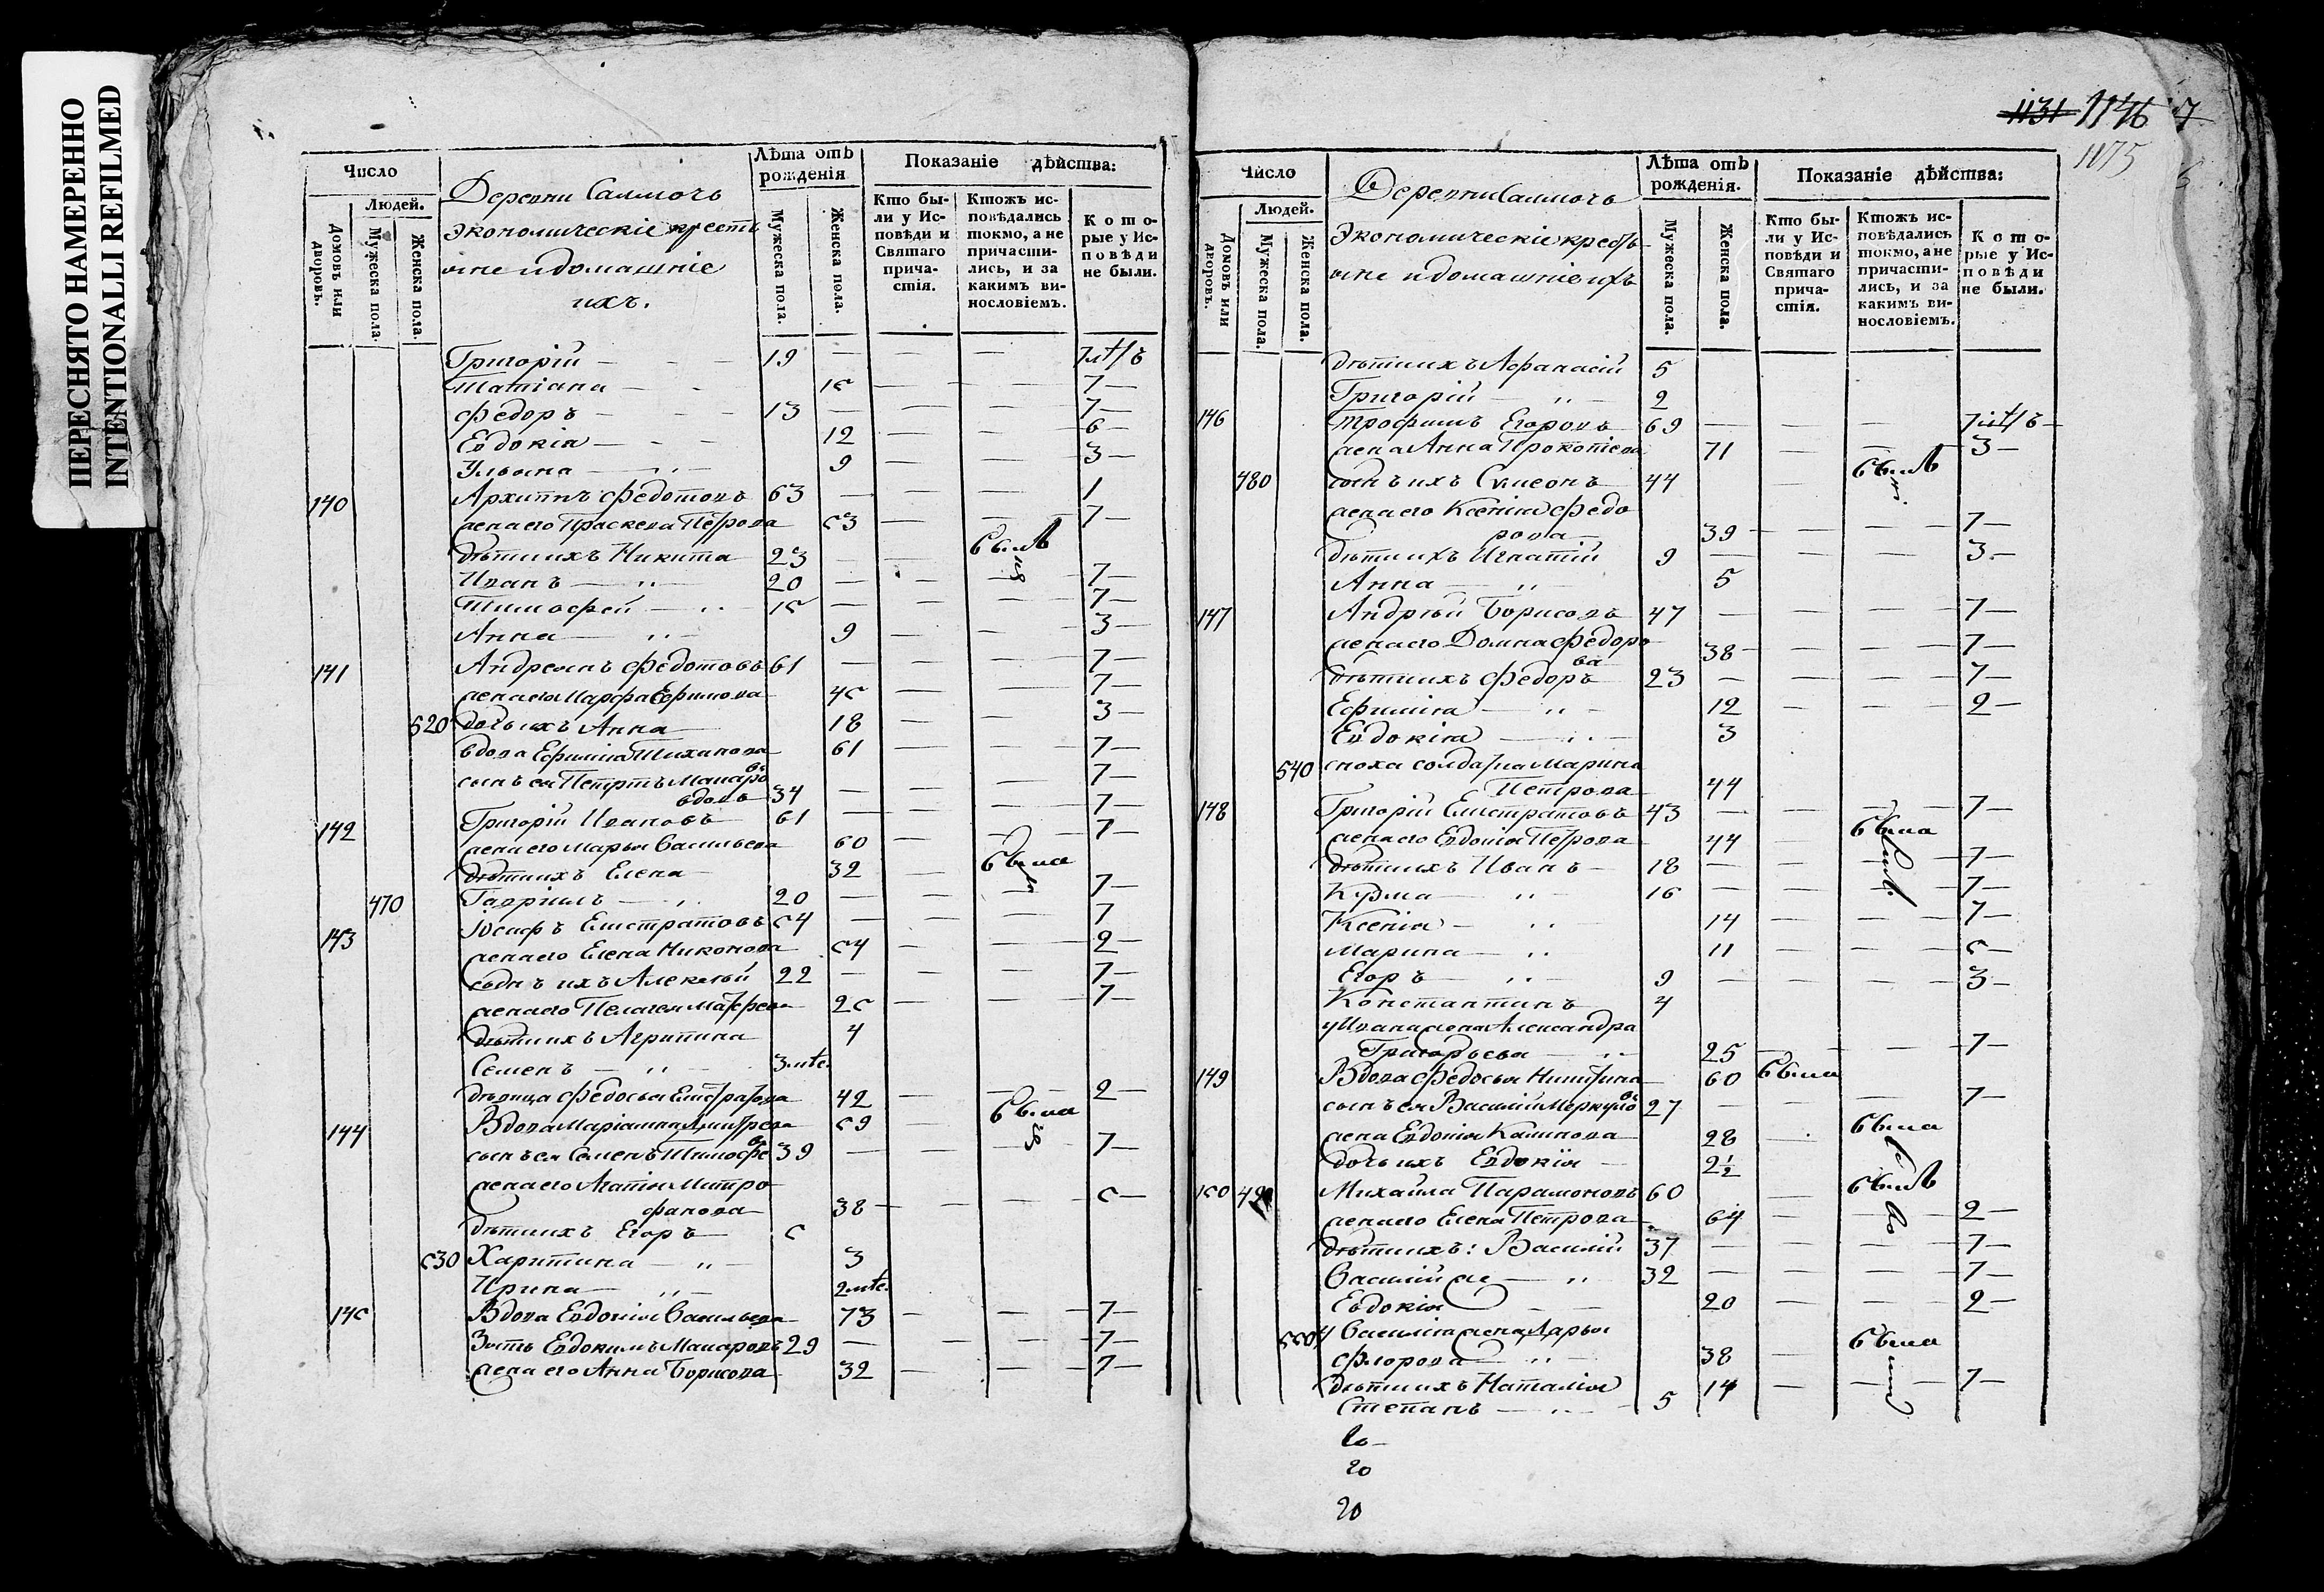 ПЕРЕСНЯТО НАМЕРЕННО
INTENTIONALLI REFILMED
Число
Людей.
Домовъ или дворовъ.
Мужеска пола.
Женска пола.
Деревни
Экономическіе крестья
не и домашніе
ихъ.
Лѣта отъ рожденія
Мужеска пола.
Женска пола.
Показаніе дѣйства:
Кто были у Исповѣди и Святаго причастія.
Ктожъ исповѣдались токмо, а не причастились, и за какимъ винословіемъ.
Которые у Исповѣди не были.
Григорій 19 7 лѣтъ
Татіана 1с 7
Федоръ 13 7
Евдокіа 12 6
Ульяна 9 3
140 Архипъ Федотовъ 63 1
жена его Праскева Петрова с3 7
дѣти ихъ Никита 23 былъ
Иванъ 20 7
Тимофей 1с 7
Анна 9 3
141 Андреянъ Федотовъ 61 7
жена его Марфа Ефимова 4с 7
520 дочь ихъ Анна 18 3
вдова Ефиміа Тиханова 61 7
сынъ ея Петръ Макаровъ
вдовъ 34 7
142 Григорій Ивановъ 61 7
жена его Марья Васильева 60 7
дѣти ихъ Елена 32 была
470 Гавриилъ 20 7
143 Іосифъ Емстратовъ с4 7
жена его Елена Никонова с4 2
сынъ ихъ Алексѣй 22 7
жена его Пелагея Матфеева 2с 7
дѣти ихъ Агрипина 4
Семенъ 3 мѣс.
дѣвица Федосья Емстратова 42 2
144 Вдова Маріамна Дмитрева с9 была
сынъ ея Семенъ Тимофеевъ 39 7
жена его Агафія Митро
фанова 38 с
дѣти ихъ Егоръ с
с30 Харитина 3
Ирина 2 мѣс.
14с Вдова Евдокія Васильева 73 7
Зять Евдокимъ Макаровъ 29 7
жена его Анна Борисова 32 7
1131 1146 7
1175
Число
Людей.
Домовъ или дворовъ.
Мужеска пола.
Женска пола.
Деревни
Экономическіе кресть
яне и домашніе ихъ
Лѣта отъ рожденія.
Мужеска пола.
Женска пола.
Показаніе дѣйства:
Кто были у Исповѣди и Святаго причастія.
Ктожъ исповѣдались токмо, а не причастились, и за какимъ винословіемъ.
Которые у Исповѣди не были.
дѣти ихъ Афанасій 5
Григорій 2
146 Трофимъ Егоровъ 69 7 лѣтъ
жена Анна Прокопиева 71 3
480 сынъ ихъ Симеонъ 44 былъ
жена его Ксеніа Федо
рова 39 7
дѣти ихъ Игнатій 9 3
Анна 5
147 Андрѣй Борисовъ 47 7
жена его Домна Федоро
ва 38 7
дѣти ихъ Федоръ 23 7
Ефиміа 12 2
Евдокіа 3
540 сноха солдатка Марина
Петрова 44
148 Григорій Емстратовъ 43 7
жена его Евдокія Петрова 44 была
дѣти ихъ Иванъ 18 7
Кузма 16 7
Ксеніа 14 7
Марина 11 с
Егоръ 9 3
Константинъ 4
у Ивана жена Александра
Григорьева 25 7
149 Вдова Федосья Никитина 60 была
сынъ ея Василій Меркуловъ 27 7
жена Евдокія Калинова 28 была
дочь ихъ Евдокія 2½
1с0 Михайла Парамоновъ 60 былъ
жена его Елена Петрова 64 2
дѣти ихъ: Василій 37 7
Василій же 32 7
Евдокія 20 2
у Василіа жена Дарья
Флорова 38 была
дѣти ихъ Наталія 14 7
Степанъ 5
20
20